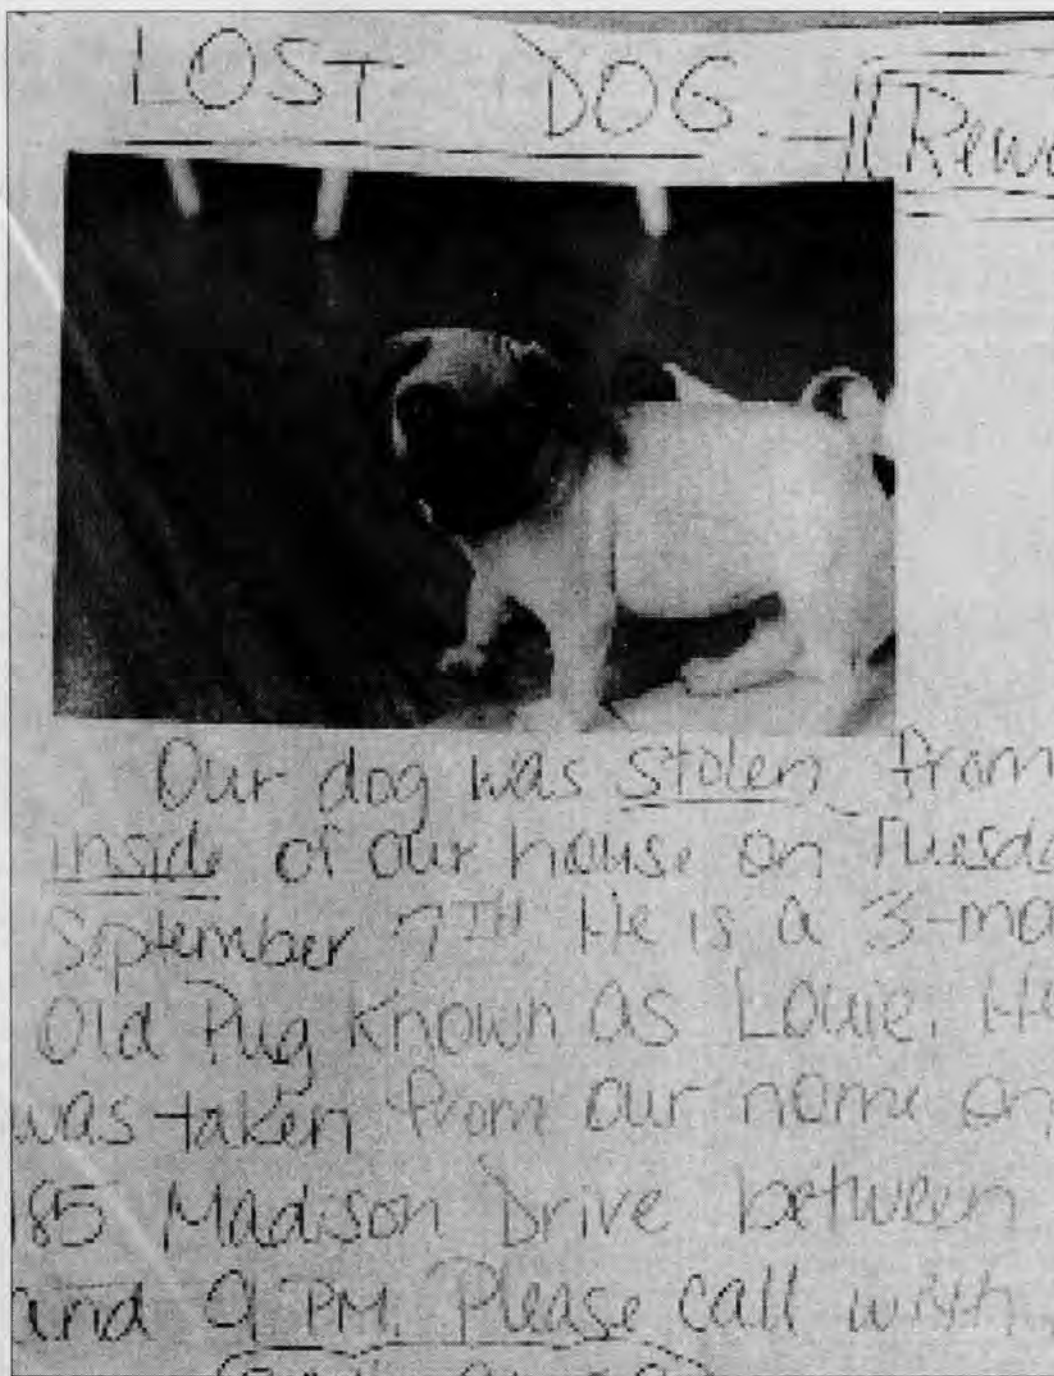 LOST DOG - Rewa
Our dog was stolen from
inside of our house on Tuesda
September 7TH He is a 3-mo
Old Pug known as Louie. He
was taken from our home on
185 Madison Drive between
and 9 PM. Please call with